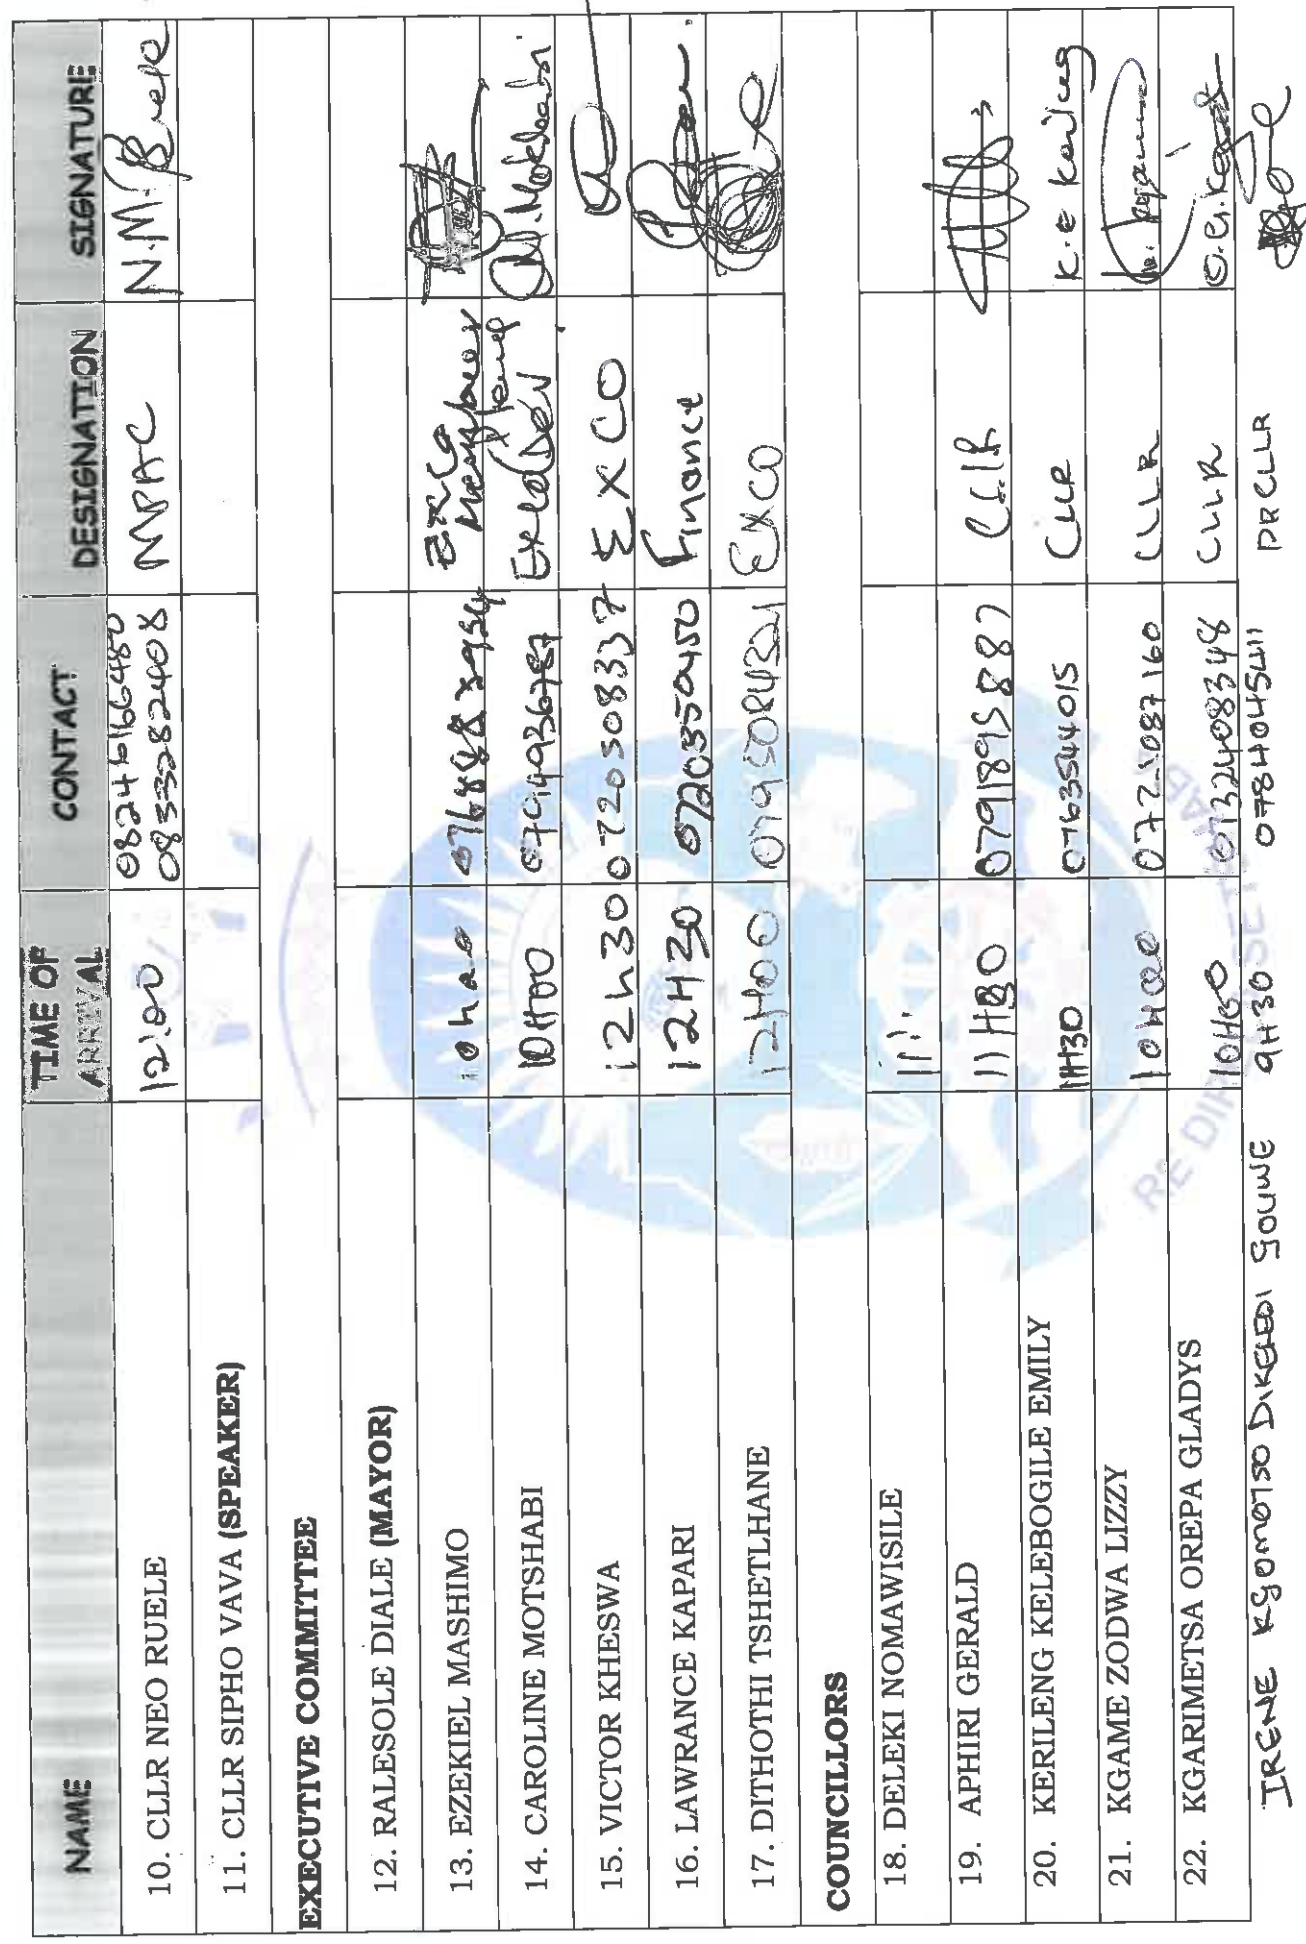 NAME TIME OF ARRIVAL CONTACT DESIGNATION SIGNATURE
10. CLLR NEO RUELE 12:00 0824616648 0833282408 MPAC N.M. Ruele
11. CLLR SIPHO VAVA (SPEAKER)
EXECUTIVE COMMITTEE
12. RALESOLE DIALE (MAYOR)
13. EZEKIEL MASHIMO EXCO Member
14. CAROLINE MOTSHABI 10H00 0794936787
15. VICTOR KHESWA 12h30 0720508337 EXCO
16. LAWRANCE KAPARI 12H30 0720350450 Finance
17. DITHOTHI TSHETLHANE 12H00 0795084321 EXCO
COUNCILLORS
18. DELEKI NOMAWISILE
19. APHIRI GERALD 11H30 0791895887 CLLR
20. KERILENG KELEBOGILE EMILY 11H30 0763544015 CLLR K.E Kerileng
21. KGAME ZODWA LIZZY 0721087160 CLLR
22. KGARIMETSA OREPA GLADYS 0732408348 CLLR
IRENE KGOMOTSO DIKELEDI GOUWE 9H30 0784045411 PRCLLR
RE DIRA SETJHABA